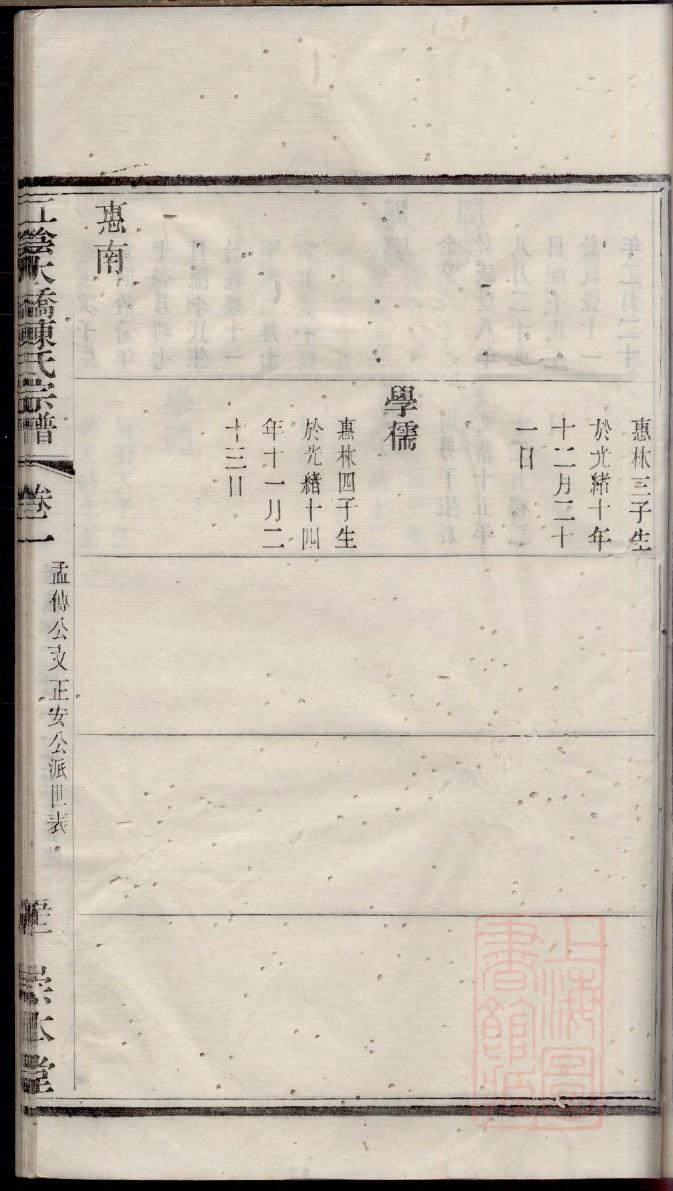 惠林三子生
於光緒十年
十二月二十
一日
學儒
惠林四子生
於光緒十四
年十一月二
十三日
惠南
陰大橋陳氏宗譜
卷二
孟傳公支正安公派世表
崇本堂
上海圖
書館藏